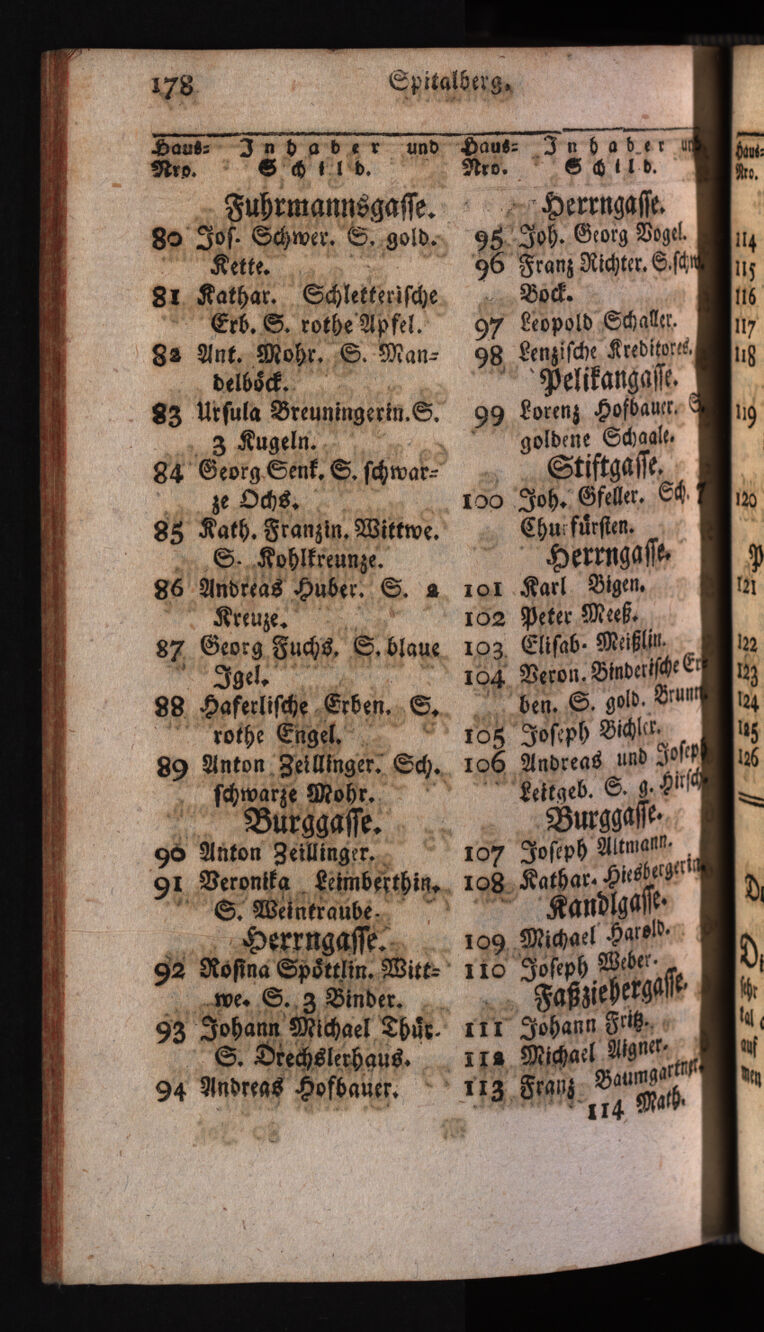 178 Spitalberg.
Haus- Inhaber und
Nro. Schild.
Fuhrmannsgasse.
80 Jos. Schwer. S. gold.
Kette.
81 Kathar. Schletterische
Erb. S. rothe Apfel.
82 Ant. Mohr. S. Man-
delböck.
83 Ursula Breuningerin. S.
3 Kugeln.
84 Georg Senk. S. schwar-
ze Ochs.
85 Kath. Franzin. Wittwe.
S. Kohlkreunze.
86 Andreas Huber. S. 2
Kreuze.
87 Georg Fuchs. S. blaue
Igel.
88 Haferlische Erben. S.
rothe Engel.
89 Anton Zeillinger. Sch.
schwarze Mohr.
Burggasse.
90 Anton Zeillinger.
91 Veronika Leimberthin.
S. Weintraube.
Herrngasse.
92 Rosina Spöttlin. Witt-
we. S. 3 Binder.
93 Johann Michael Thür.
S. Drechslerhaus.
94 Andreas Hofbauer.
Haus- Inhaber
Nro. Schild.
Herrngasse.
95 Joh. Georg Vogel.
96 Franz Richter. S. schw
Bock.
97 Leopold Schaller.
98 Lenzische Kreditores.
Pelikangasse.
99 Lorenz Hofbauer. S
goldene Schaale.
Stiftgasse.
100 Joh. Gfeller. Sch. 7
Churfürsten.
Herrngasse.
101 Karl Bigen.
102 Peter Meeß.
103 Elisab. Meißlin.
104 Veron. Binderische Er
ben. S. gold. Brunn
105 Joseph Bichler.
106 Andreas und Joseph
Leitgeb. S. g. Hirsch
Burggasse.
107 Joseph Altmann.
108 Kathar. Hiesbergerin
Kandlgasse.
109 Michael Harold.
110 Joseph Weber.
Faßziehergasse.
111 Johann Fritz.
112 Michael Aigner.
113 Franz Baumgartner.
114 Math.
Haus-
Nro.
114
115
116
117
118
119
120
P
121
122
123
124
125
126